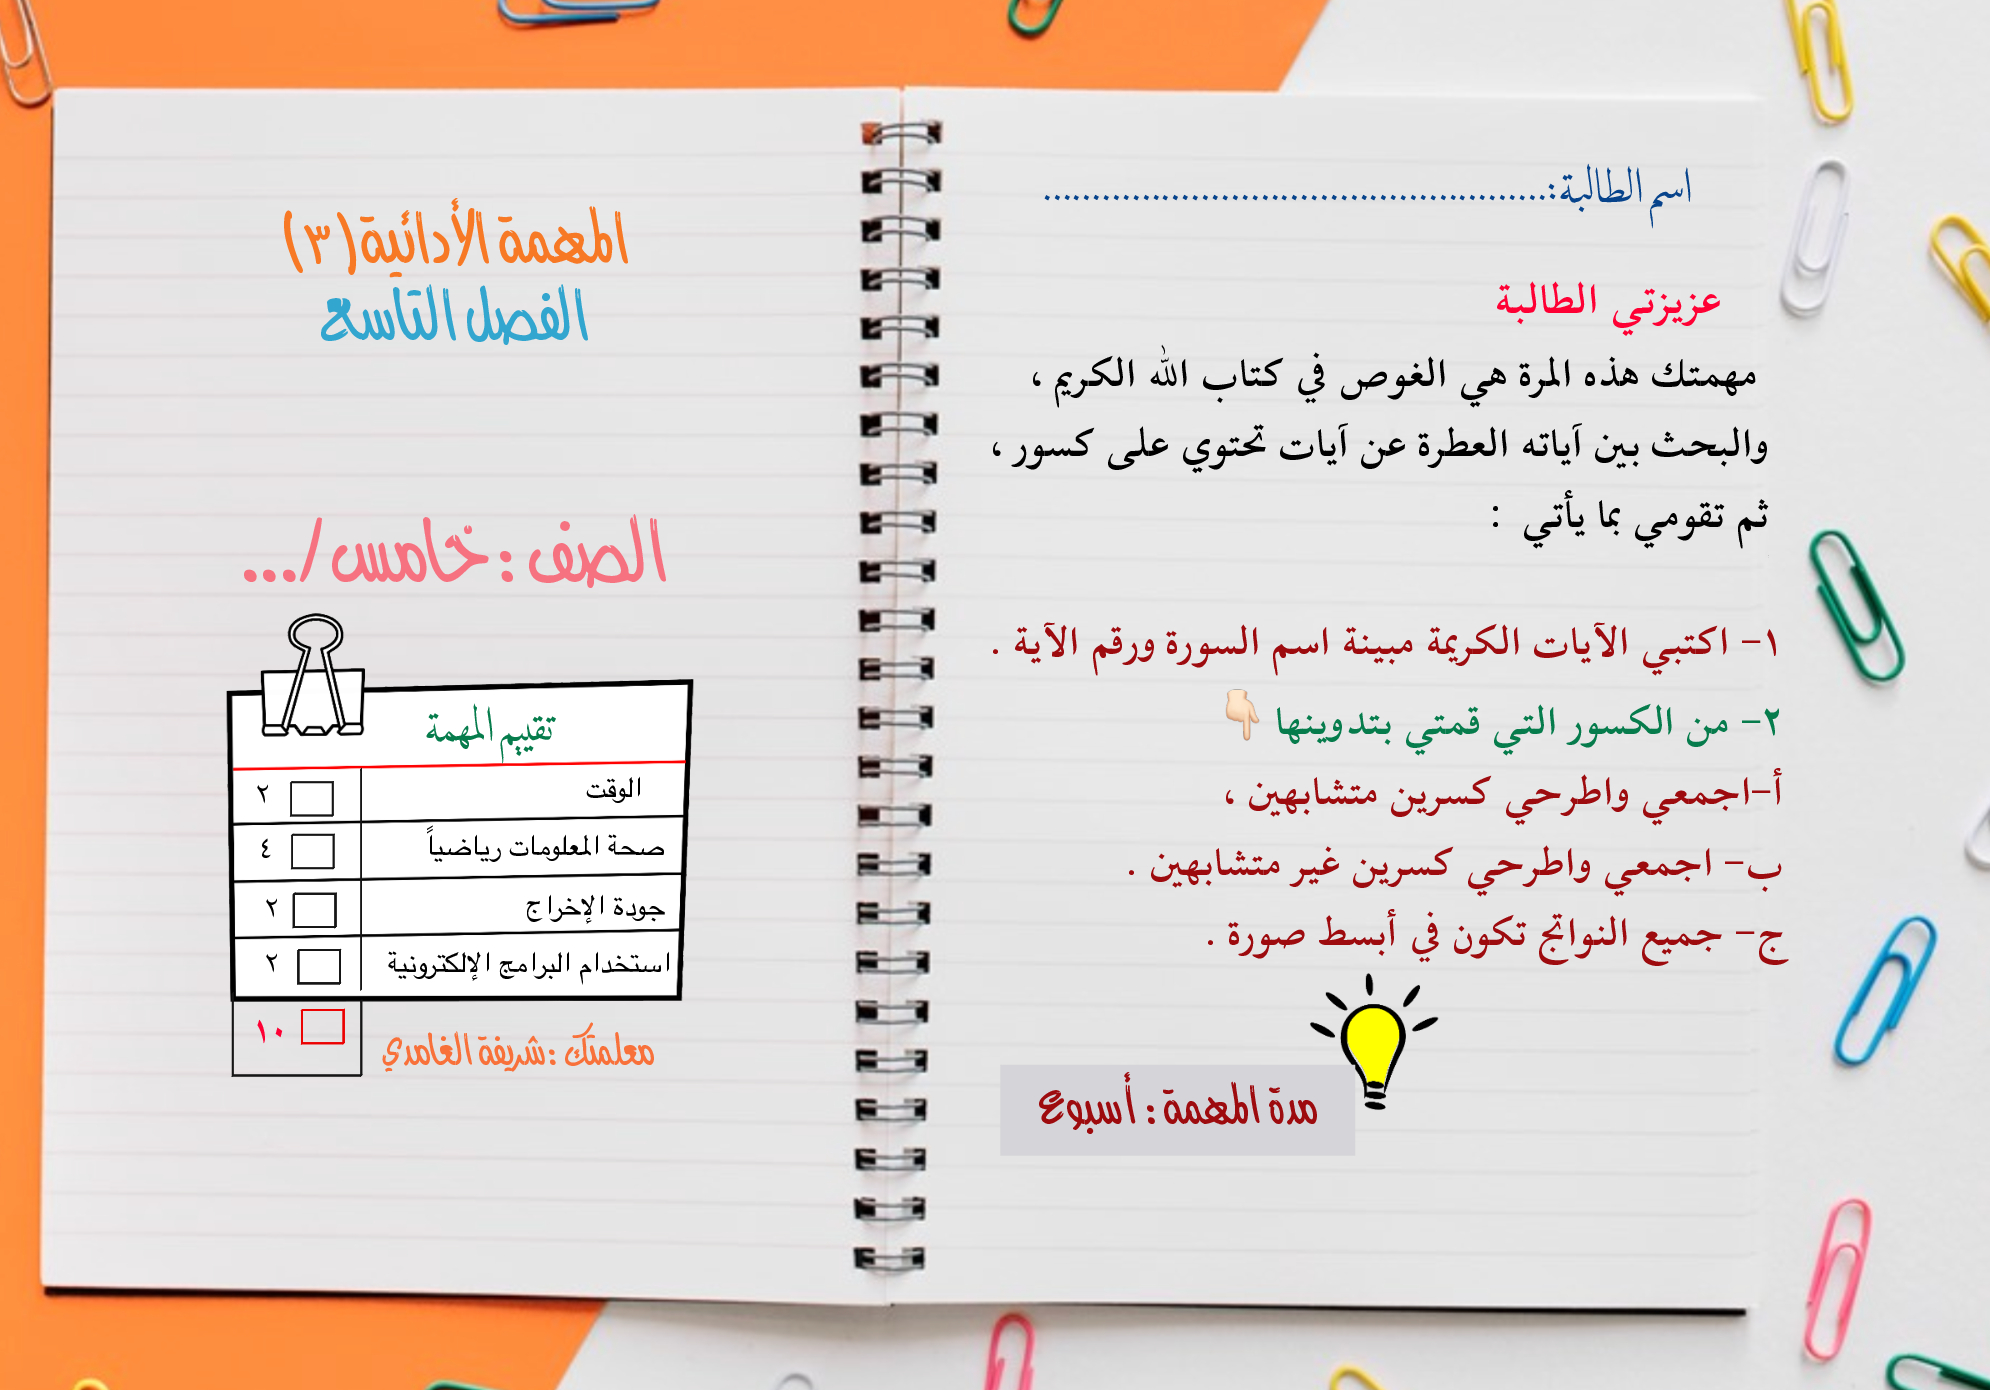 اسم الطالبة:....................................................
عزيزتي الطالبة
مهمتك هذه المرة هي الغوص في كتاب الله الكريم ،
والبحث بين آياته العطرة عن آيات تحتوي على كسور ،
ثم تقومي بما يأتي :
١- اكتبي الآيات الكريمة مبينة اسم السورة ورقم الآية .
٢- من الكسور التي قمتي بتدوينها 👇🏻
أ-اجمعي واطرحي كسرين متشابهين ،
ب- اجمعي واطرحي كسرين غير متشابهين .
ج- جميع النواتج تكون في أبسط صورة .
مدة المهمة : أسبوع
المهمة الأدائية (٣)
الفصل التاسع
الصف : خامس /...
تقييم المهمة
الوقت ٢
صحة المعلومات رياضياً ٤
جودة الإخراج ٢
استخدام البرامج الإلكترونية ٢
١٠
معلمتك : شريفة الغامدي